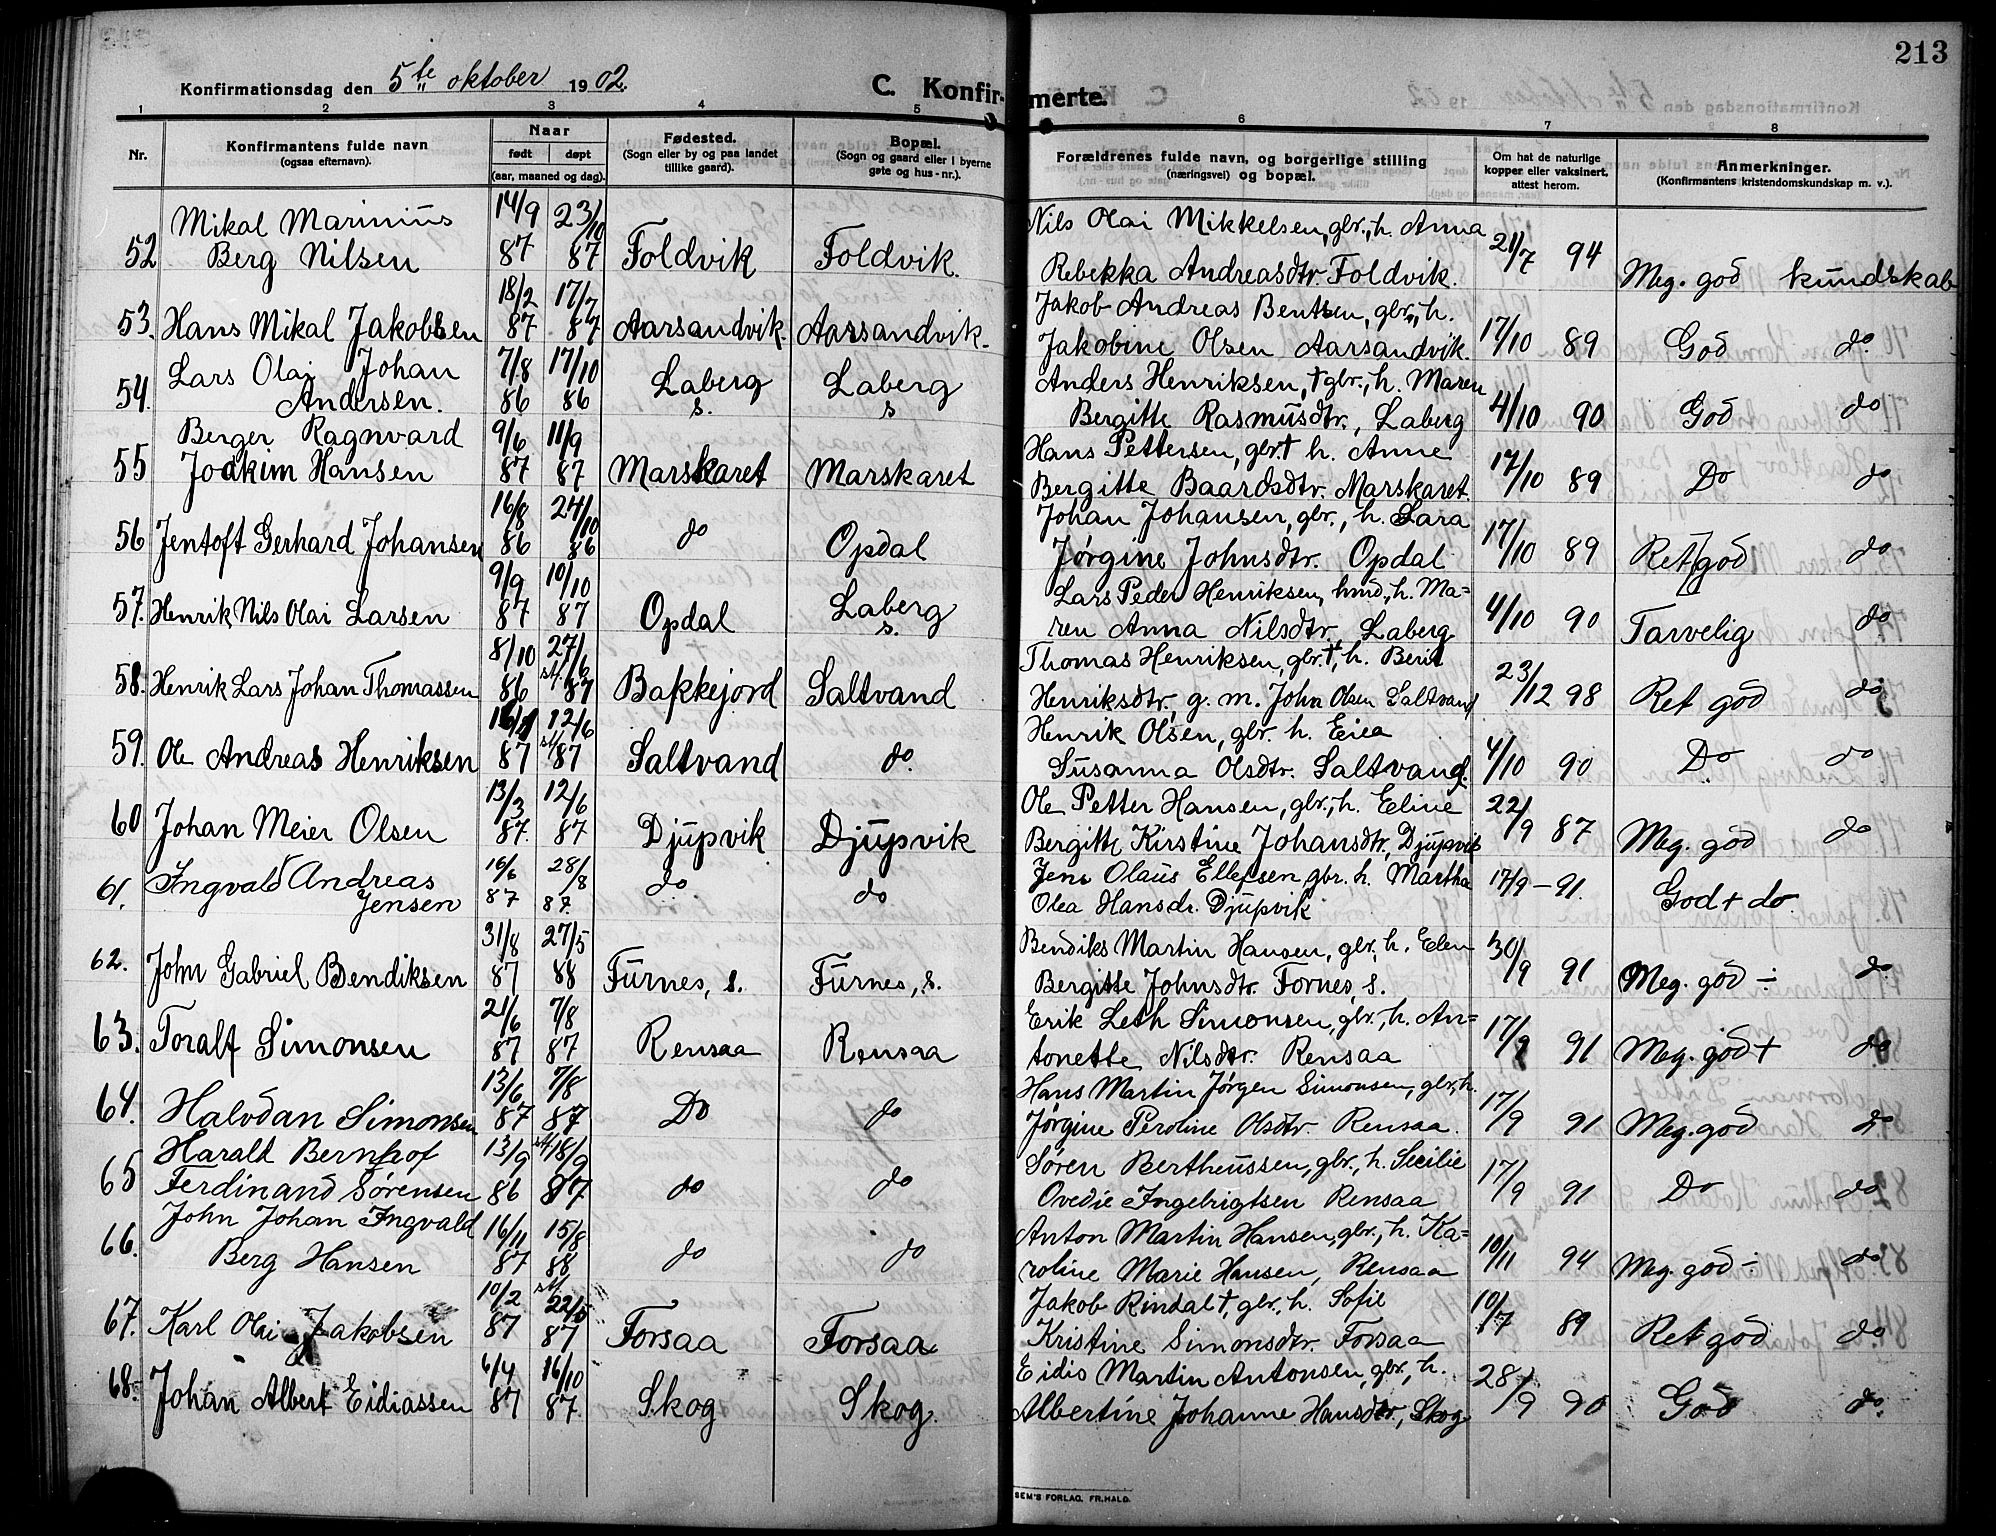 213
Konfirmationsdag den 5te oktober 1902.
C. Konfirmerte.
1 2 3 4 5 6 7 8
Nr.
Konfirmantens fulde navn
(ogsaa efternavn).
Naar
født døpt
(aar, maaned og dag).
Fødested.
(Sogn eller by og paa landet
tillike gaard).
Bopæl.
(Sogn og gaard eller i byerne
gate og hus-nr.).
Forældrenes fulde navn, og borgerlige stilling
(næringsvei) og bopæl.
Om hat de naturlige
kopper eller vaksinert,
attest herom.
Anmerkninger.
(Konfirmantens kristendomskundskap m. v.).
Mikal Marinius 14/9 23/10 Nils Olai Mikkelsen, gbr., h. Anna
52 Berg Nilsen 87 87 Foldvik Foldvik. Rebekka Andreasdtr. Foldvik. 21/7 94 Meg. god kundskab
18/2 17/7 Jakob Andreas Bentsen, gbr., h.
53. Hans Mikal Jakobsen 87 87 Aarsandvik. Aarsandvik. Jakobine Olsen Aarsandvik. 17/10 89 God do.
Lars Olai Johan 7/8 17/10 Anders Henriksen, † gbr., h. Maren
54. Andersen. 86 86 Laberg s. Laberg s Bergitte Rasmusdtr., Laberg 4/10 90 God do
Berger Ragnvard 9/6 11/9 Hans Pettersen, gbr. † h. Anne
55 Joakim Hansen 87 87 Marskaret Marskaret Bergitte Baardsdtr. Marskaret. 17/10 89 Do do
16/8 24/10 Johan Johansen, gbr., h. Lara
56 Jentoft Gerhard Johansen 86 86 do Opdal Jørgine Johnsdtr. Opdal 17/10 89 Ret god do
9/9 10/10 Lars Peder Henriksen, hmd., h. Ma-
57. Henrik Nils Olai Larsen 87 87 Opdal Laberg s. ren Anna Nilsdtr., Laberg 4/10 90 Tarvelig do.
8/10 27/6 Thomas Henriksen, gbr. †, h. Berit
58. Henrik Lars Johan Thomassen 86 st/. 87 Bakkejord Saltvand Henriksdtr., g. m. John Olsen Saltvand 23/12 98 Ret god do
12/6 Henrik Olsen, gbr. h.
59. Ole Andreas Henriksen 87 st/. 87 Saltvand do. Susanna Olsdtr. Saltvand. 4/10 90 Do. do
13/3 12/6 Ole Petter Hansen, gbr., h. Eline
60 Johan Meier Olsen 87. 87 Djupvik Djupvik Bergitte Kirstine Johansdtr., Djupvik 22/9 87 Meg. god do
Ingvald Andreas 16/6 28/8 do do Jens Olaus Ellefsen gbr. h. Martha 17/9 - 91. God + do.
61. Jensen 87 87. Olea Hansdr. Djupvik
31/8 27/5 Bendiks Martin Hansen, gbr., h. Elen
62. John Gabriel Bendiksen 87 88 Furnes, s. Furnes, s. Bergitte Johnsdtr. Fornes, s. 30/9 91 Meg. god ÷ do
21/6 7/8 Erik Leth Simonsen, gbr., h. An-
63. Toralf Simonsen 87 87 Rensaa Rensaa tonette Nilsdtr. Rensaa 17/9 91 Meg. god + do
13/6 7/8 Hans Martin Jørgen Simonsen, gbr., h.
64. Halvdan Simonsen 87 87 Do do Jørgine Peroline Olsdtr. Rensaa. 17/9 91 Meg. god do
Harald Bernhof 13/9 st/. 18/9 Søren Bertheussen, gbr., h. Secilie
65 Ferdinand Sørensen 86 87 do do Ovedie Ingebrigtsen Rensaa 17/9 91 Do do
John Johan Ingvald 16/11 15/8 Anton Martin Hansen, gbr., h. Ka-
66. Berg Hansen 87 88 do do roline Marie Hansen, Rensaa 10/11 94 Meg. god ÷ do
10/2 st/. 22/5 Jakob Rindal †, gbr., h. Sofie
67. Karl Olai Jakobsen 87 87 Forsaa Forsaa Kristine Simonsdtr. Forsaa 10/7 89 Ret god do
6/4 16/10 Eidis Martin Antonsen, gbr., h.
68. Johan Albert Eidiassen 87 87. Skog Skog Albertine Johanne Hansdtr., Skog 28/9 90 God do.
SEM'S FORLAG, FR.HALD.